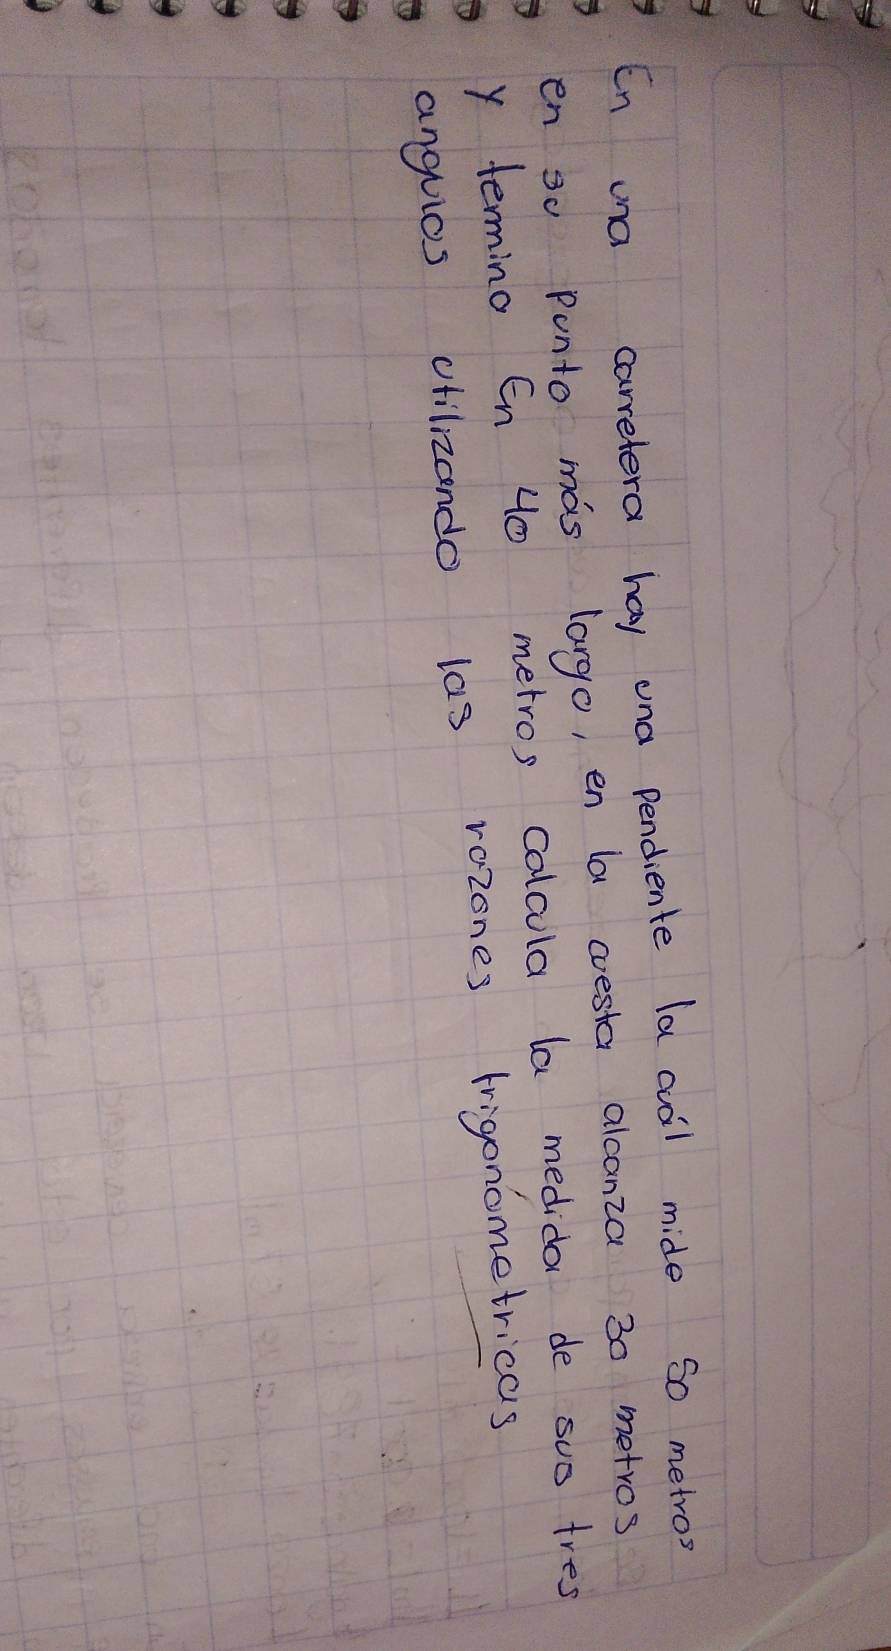 En una carretera hay una pendiente la cuál mide 50 metros
en su punto más largo, en la cuesta alcanza 30 metros
y termina En 40 metros calcula la medida de sus tres
angulos utilizando las razones trigonómetricas